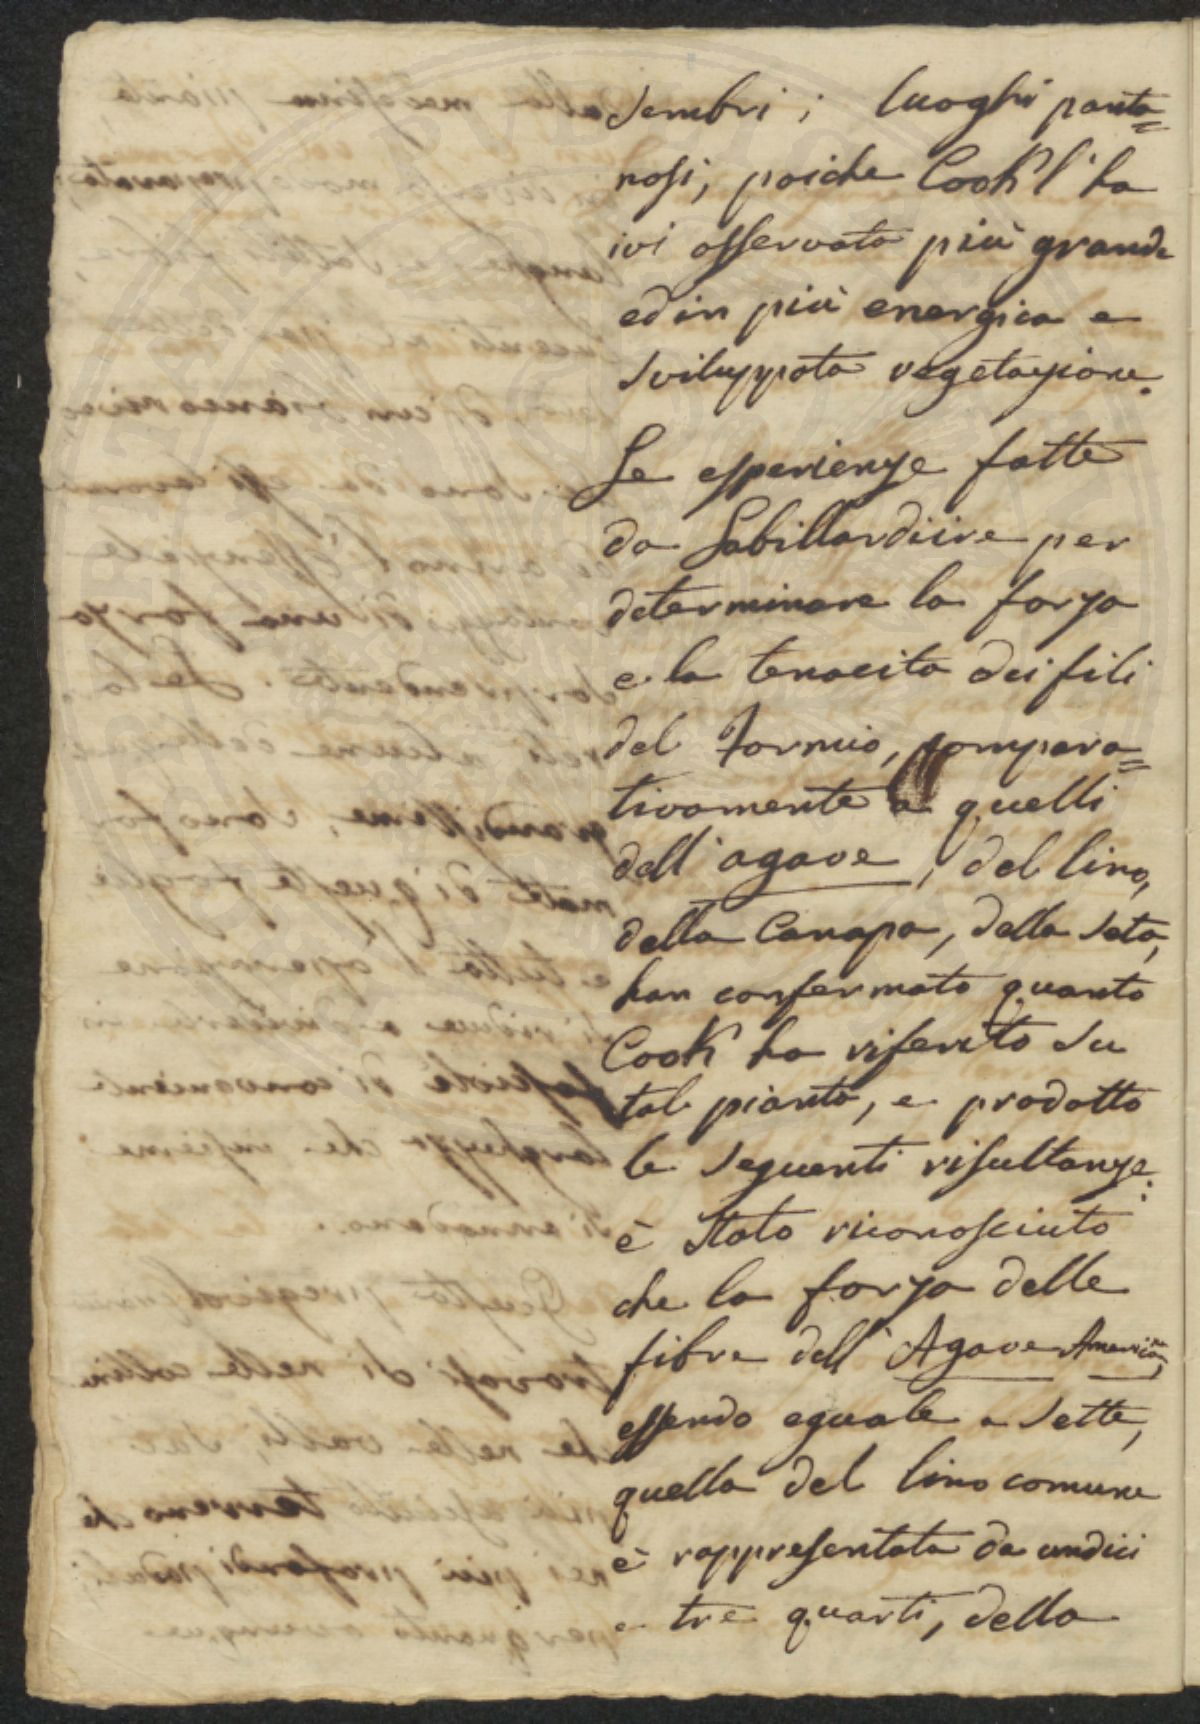 sembri i luoghi panta=
nosi, poiche Cook l'ha
ivi osservata più grande
ed in più energica e
sviluppata vegetazione.
Le esperienze fatte
da Labillardiire per
determinare la forza
e la tenacita dei fili
del Formio, compara=
tivamente a quelli
dell'agave, del lino,
della Canapa, della seta,
han confermato quanto
Cook ha riferito su
tal pianta, e prodotto
le seguenti risultanze:
è stato riconosciuto
che la forza delle
fibre dell'Agave Americana,
essendo eguale a sette,
quella del lino comune
è rappresentata da undici
e tre quarti, della